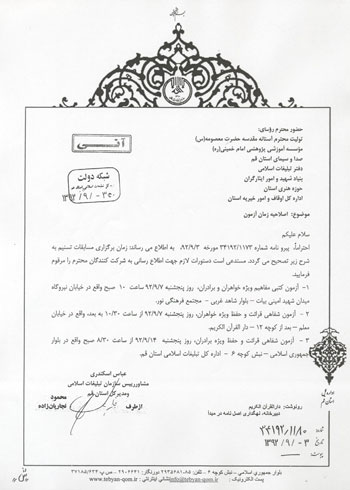 آنی
شبکه دولت
حضور محترم رؤسای:
تولیت محترم آستانه مقدسه حضرت معصومه(س)
مؤسسه آموزشی پژوهشی امام خمینی(ره)
صدا و سیمای استان قم
دفتر تبلیغات اسلامی
بنیاد شهید و امور ایثارگران
حوزه هنری استان
اداره کل اوقاف و امور خیریه استان
موضوع: اصلاحیه زمان آزمون
سلام علیکم
احتراماً، پیرو نامه شماره ۳۴۱۹۲/۱۱۷۳ مورخه ۹۲/۹/۳ به اطلاع می رساند: زمان برگزاری مسابقات تسنیم به
شرح زیر تصحیح می گردد. مستدعی است دستورات لازم جهت اطلاع رسانی به شرکت کنندگان محترم را مرقوم
فرمایید.
۱- آزمون کتبی مفاهیم ویژه خواهران و برادران، روز پنجشنبه ۹۲/۹/۷ ساعت ۱۰ صبح واقع در خیابان نیروگاه
میدان شهید امینی بیات – بلوار شاهد غربی – مجتمع فرهنگی نور.
۲- آزمون شفاهی قرائت و حفظ ویژه خواهران، روز پنجشنبه ۹۲/۹/۷ از ساعت ۱۰/۳۰ به بعد، واقع در خیابان
معلم – بعد از کوچه ۱۲ – دار القرآن الکریم.
۳ – آزمون شفاهی قرائت و حفظ ویژه برادران، روز پنجشنبه ۹۲/۹/۱۴ ساعت ۸/۳۰ صبح واقع در بلوار
جمهوری اسلامی – نبش کوچه ۶ – اداره کل تبلیغات اسلامی استان قم.
عباس اسکندری
مشاور رییس سازمان تبلیغات اسلامی
و مدیرکل استان قم
از طرف
محمود نجاریان‌زاده
رونوشت: دارالقرآن الکریم
دبیرخانه، نگهداری اصل نامه در مبدأ
۳۴۱۹۲/۱۱۸۰
تاریخ ۱۳۹۲/۹/۰۳
بلوار جمهوری اسلامی – نبش کوچه ۶ – تلفن: